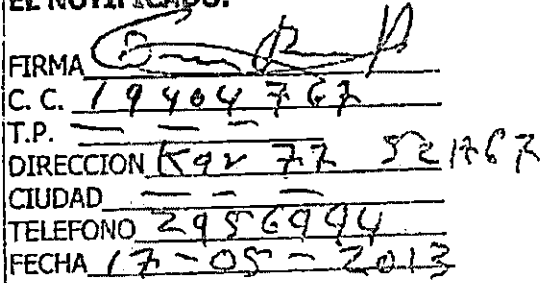 EL NOTIFICADO:
FIRMA
C. C. 19404767
T.P. — — —
DIRECCION Kar 77 52 A 67
CIUDAD — — —
TELEFONO 2956944
FECHA 17-05-2013